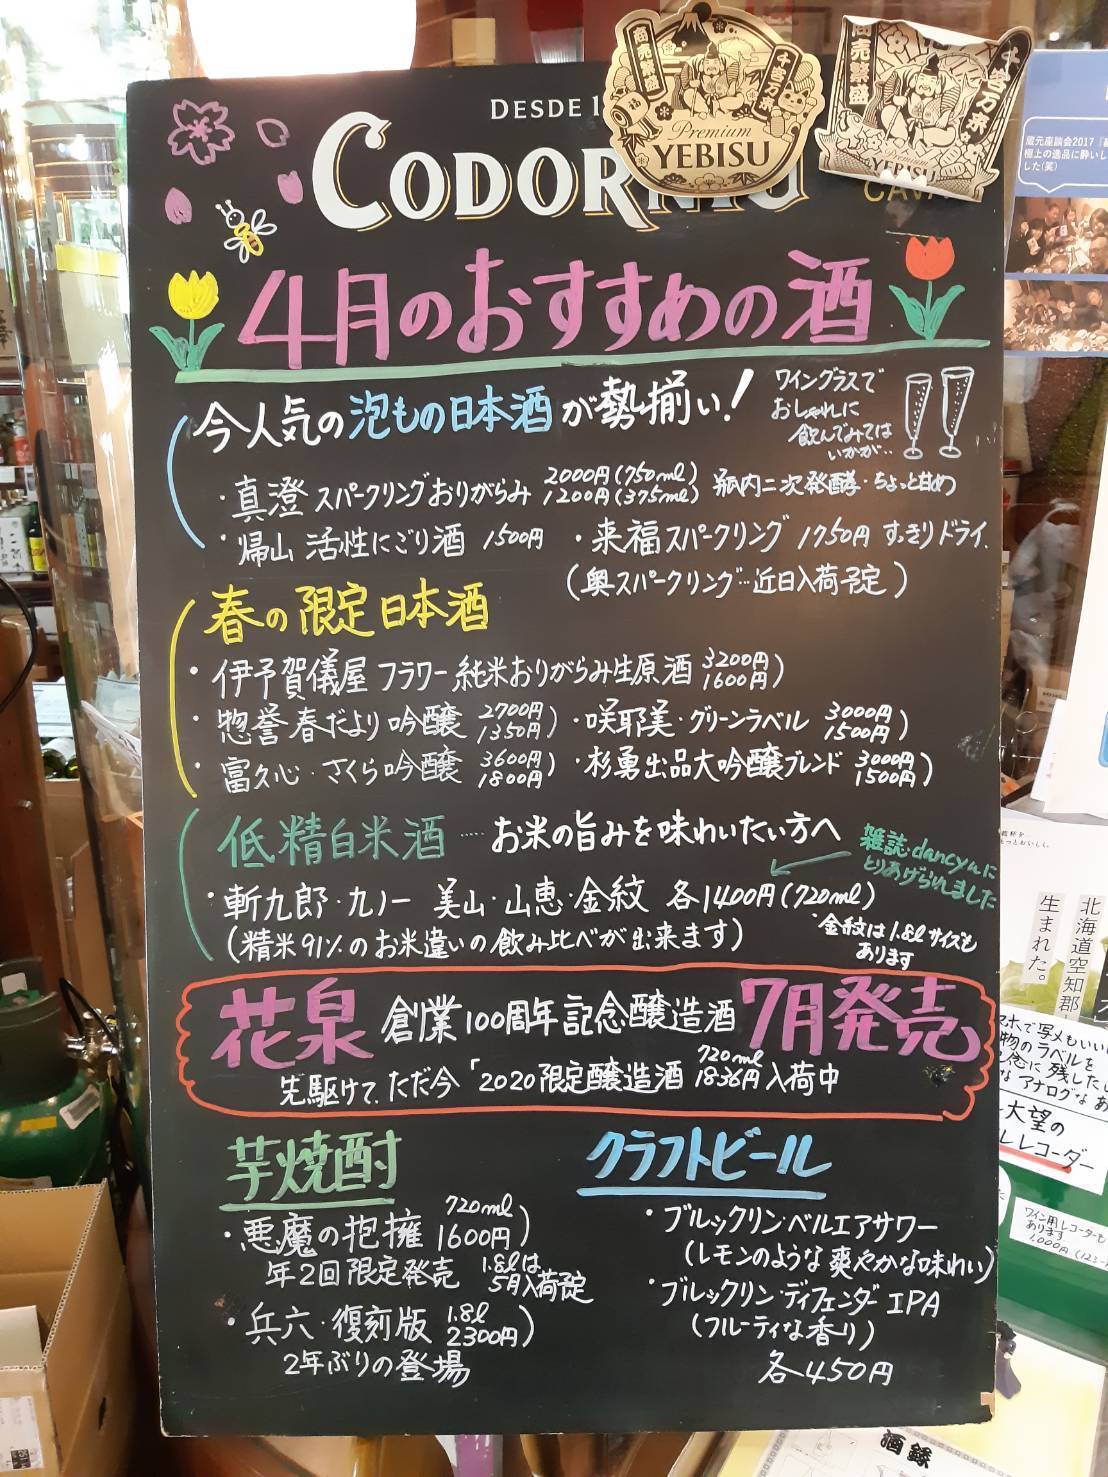 DESDE 1
CODORNIU
商売繁盛
千客万来
Premium
YEBISU
商売繁盛
千客万来
Premium
YEBISU
CAVA
4月のおすすめの酒
今人気の泡もの日本酒が勢揃い!
ワイングラスで
おしゃれに
飲んでみては
いかが・・
・真澄 スパークリングおりがらみ 2000円(750ml) 1200円(375ml) 瓶内二次発酵・ちょっと甘め
・帰山 活性にごり酒 1500円 ・来福スパークリング 1750円 すっきりドライ.
(奥スパークリング…近日入荷予定)
春の限定日本酒
・伊予賀儀屋 フラワー純米おりがらみ生原酒 3200円 1600円)
・惣誉春だより吟醸 2700円 1350円) ・咲耶美・グリーンラベル 3000円 1500円)
・富久心・さくら吟醸 3600円 1800円) ・杉勇出品大吟醸ブレンド 3000円 1500円)
低精白米酒 ‥‥ お米の旨みを味わいたい方へ
雑誌・dancyuに
とりあげられました
・斬九郎・九ノ一 美山・山恵・金紋 各1400円(720ml)
(精米91%のお米違いの飲み比べが出来ます)
・金紋は1.8lサイズも
あります
花泉 創業100周年記念醸造酒 7月発売
先駆けて、ただ今「2020限定醸造酒 720ml 1836円 入荷中
芋焼酎
・悪魔の抱擁 720ml 1600円)
年2回限定発売 1.8lは 5月入荷予定
・兵六・復刻版 1.8l 2300円)
2年ぶりの登場
クラフトビール
・ブルックリン・ベルエアサワー
(レモンのような爽やかな味わい)
・ブルックリン・ディフェンダーIPA
(フルーティな香り)
各450円
蔵元座談会2017
極上の逸品に酔いし
した(笑)
北海道空知郡
生まれた。
ワイン用レコーダーも
あります
1,000円
大望の
レコーダー
酒録